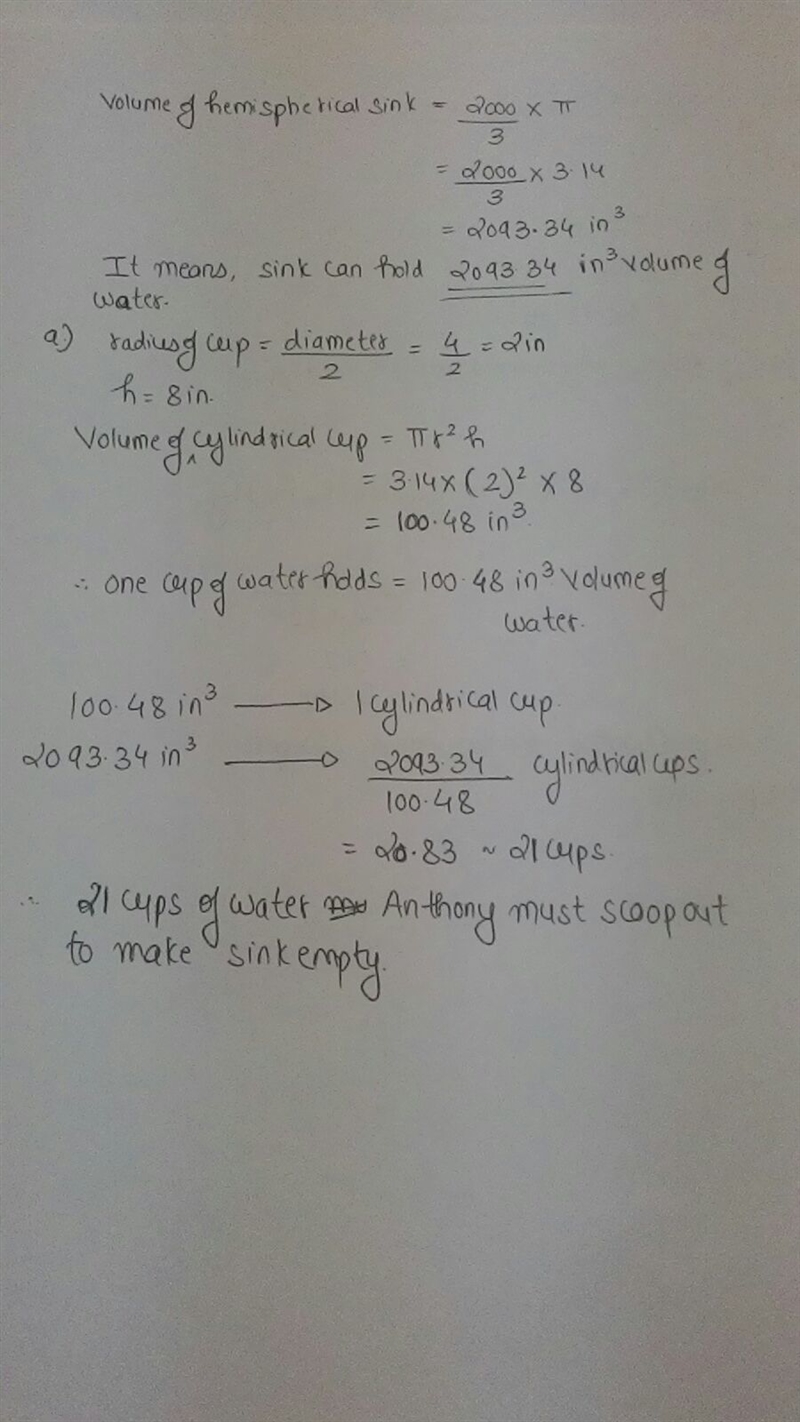 Volume of hemispherical sink = 2000/3 × π
= 2000/3 × 3.14
= 2093.34 in³
It means, sink can hold 2093.34 in³ volume of
water.
a) radius of cup = diameter/2 = 4/2 = 2in
h = 8in.
Volume of cylindrical cup = πr²h
= 3.14×(2)² × 8
= 100.48 in³.
∴ one cup of water holds = 100.48 in³ volume of
water.
100.48 in³ → 1 cylindrical cup.
2093.34 in³ → 2093.34/100.48 cylindrical cups.
= 20.83 ~ 21 cups.
∴ 21 cups of water Anthony must scoop out
to make sink empty.